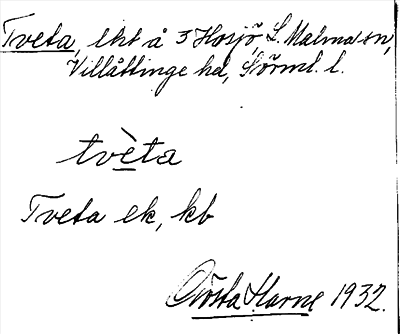 Tveta, lht å 3 Hosjö, L. Malma sn,
Villåttinge hd, Sörml. l.
tvèta
Tveta ek, kb
Gösta Harne 1932.